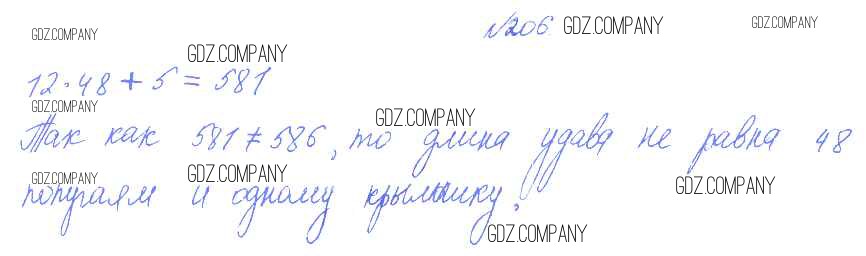 №206. GDZ.COMPANY GDZ.COMPANY
GDZ.COMPANY
GDZ.COMPANY
12·48 + 5 = 581
GDZ.COMPANY
GDZ.COMPANY
Так как 581 ≠ 586, то длина удава не равна 48
GDZ.COMPANY GDZ.COMPANY GDZ.COMPANY
попугаям и одному крылышку.
GDZ.COMPANY